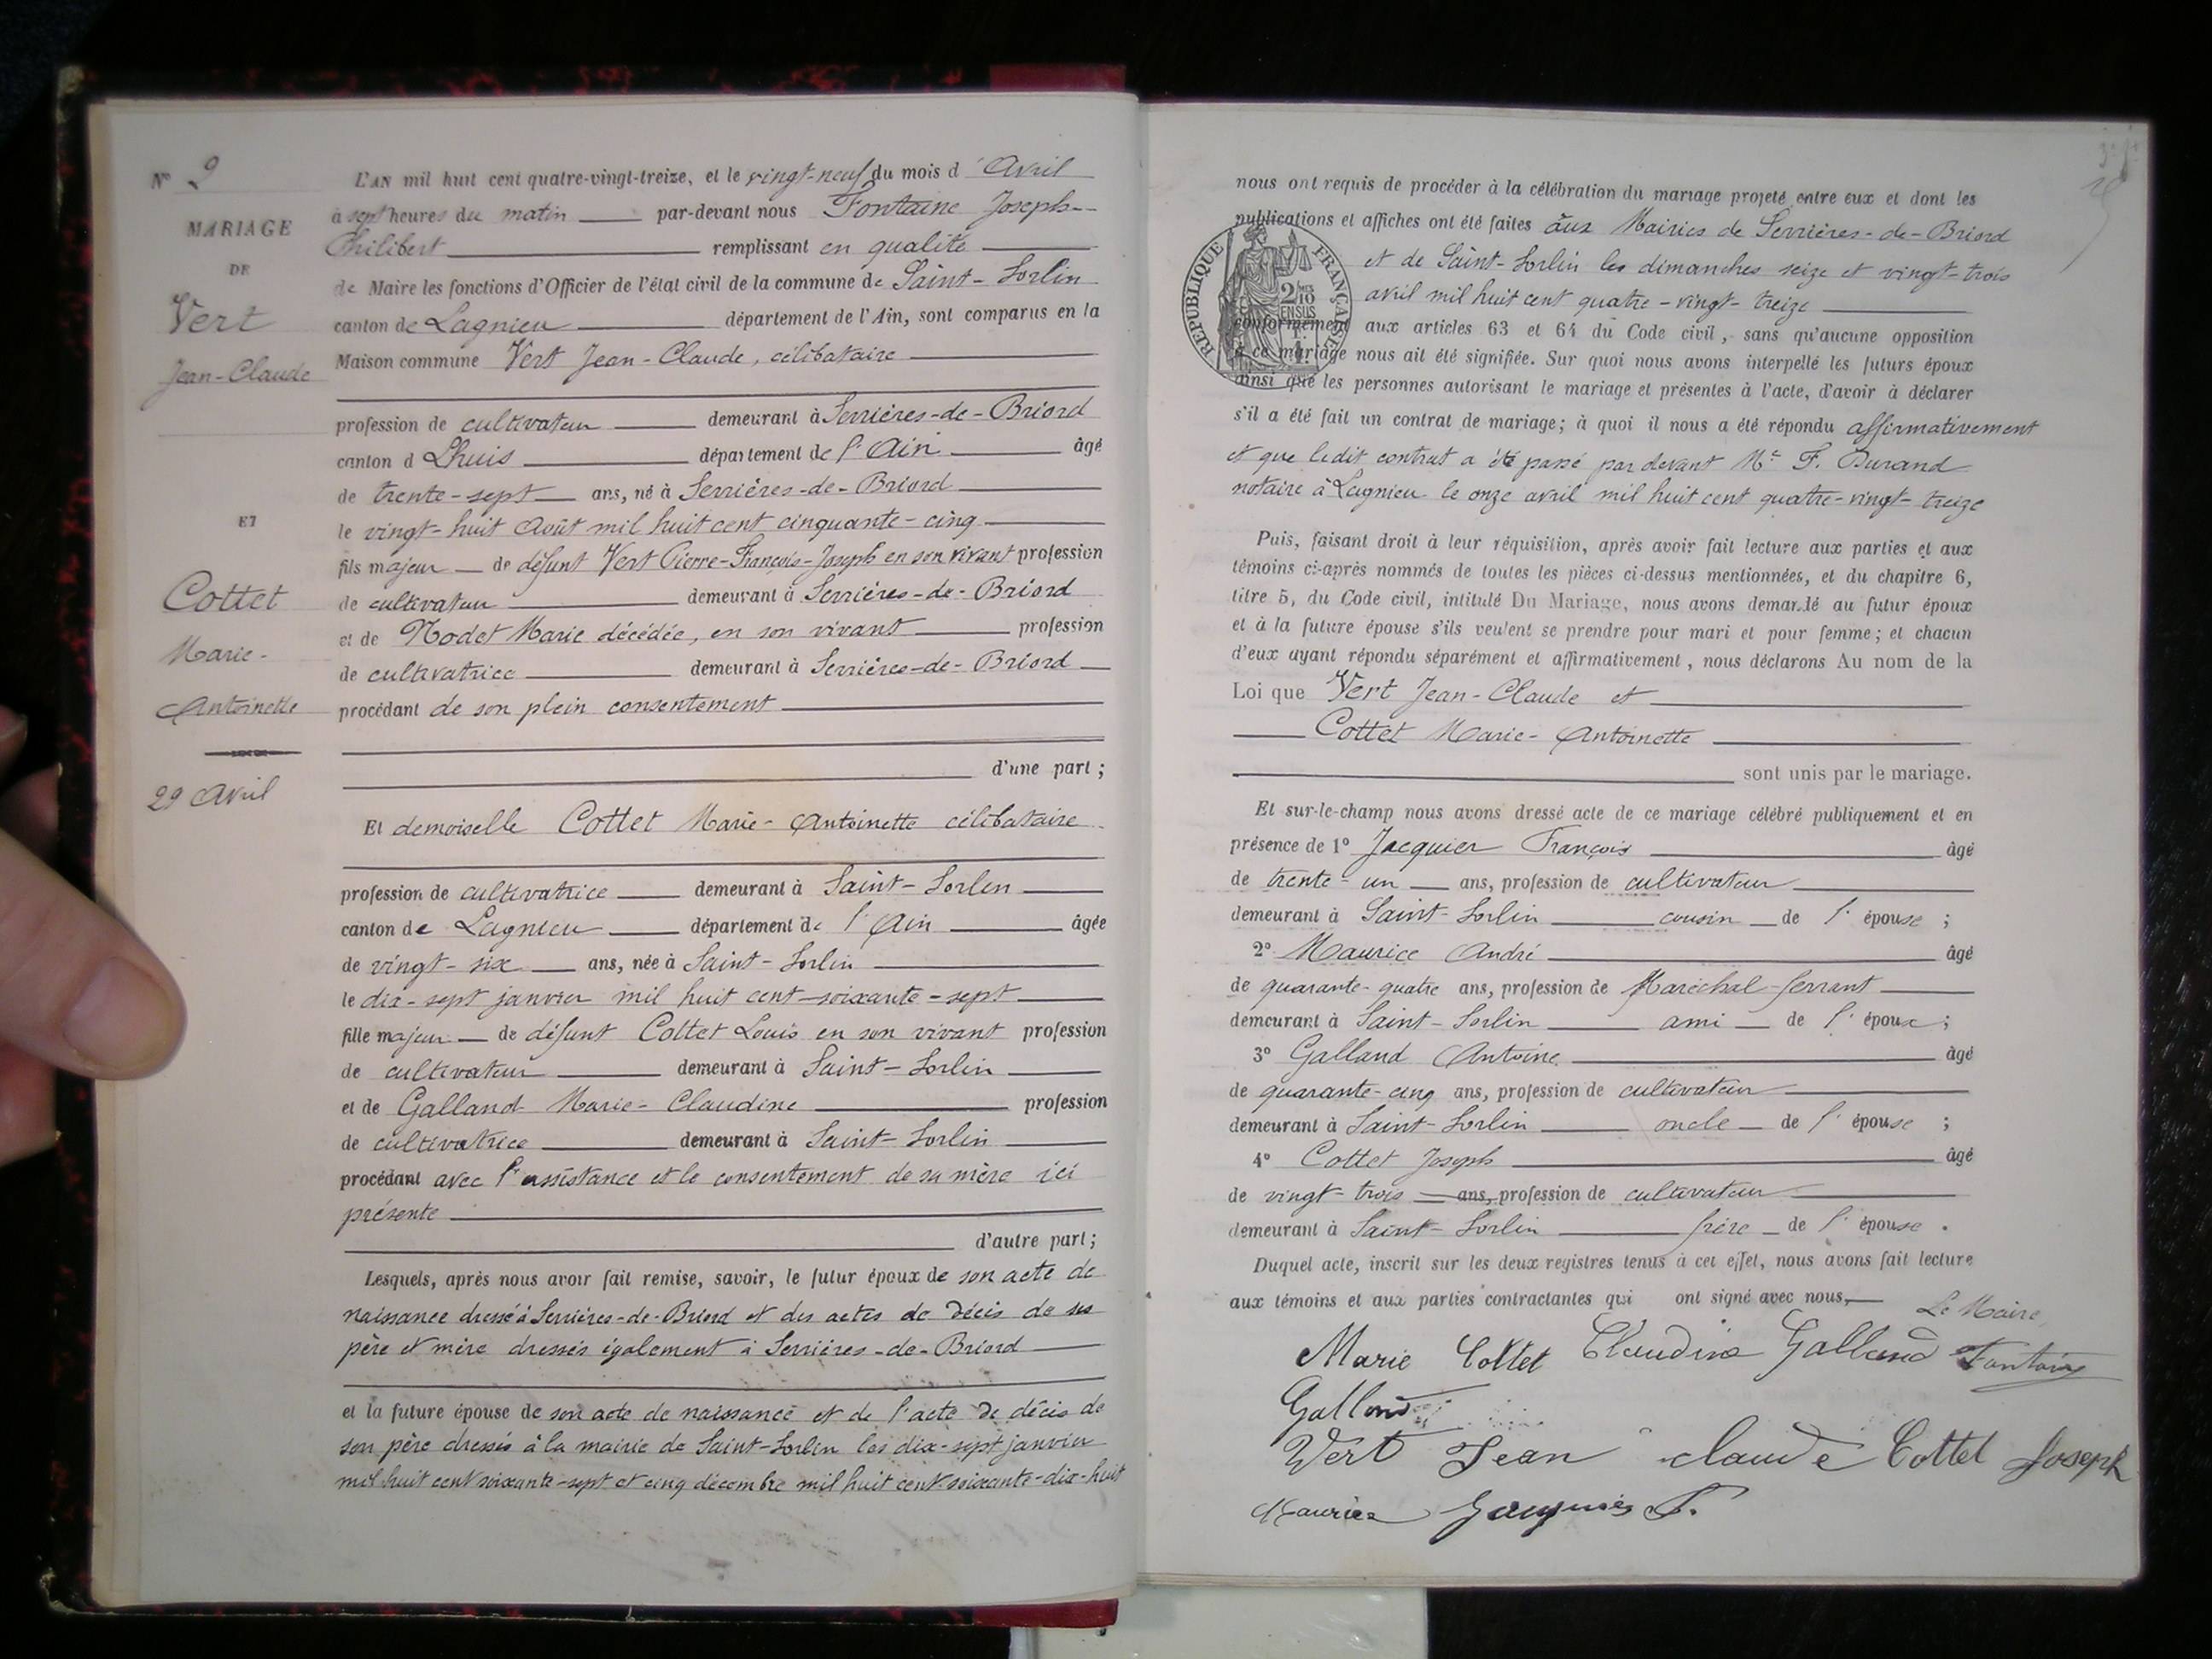 N° 9
MARIAGE
DE
Vert
Jean-Claude
ET
Cottet
Marie-
Antoinette
29 Avril
L'AN mil huit cent quatre-vingt-treize, et le vingt-neuf du mois d'Avril
à sept heures du matin par-devant nous Fontaine Joseph-
Philibert remplissant en qualité
de Maire les fonctions d'Officier de l'état civil de la commune de Saint-Sorlin
canton de Lagnieu département de l'Ain, sont comparus en la
Maison commune Vert Jean-Claude, célibataire
profession de cultivateur demeurant à Serrières-de-Briord
canton d Lhuis département de l'Ain âgé
de trente-sept ans, né à Serrières-de-Briord
le vingt-huit Août mil huit cent cinquante-cinq
fils majeur de défunt Vert Pierre-François-Joseph en son vivant profession
de cultivateur demeurant à Serrières-de-Briord
et de Nodet Marie décédée, en son vivant profession
de cultivatrice demeurant à Serrières-de-Briord
procédant de son plein consentement
d'une part ;
Et demoiselle Cottet Marie-Antoinette célibataire
profession de cultivatrice demeurant à Saint-Sorlin
canton de Lagnieu département de l'Ain âgée
de vingt-six ans, née à Saint-Sorlin
le dix-sept janvier mil huit cent soixante-sept
fille majeur de défunt Cottet Louis en son vivant profession
de cultivateur demeurant à Saint-Sorlin
et de Galland Marie-Claudine profession
de cultivatrice demeurant à Saint-Sorlin
procédant avec l'assistance et le consentement de sa mère ici
présente
d'autre part ;
Lesquels, après nous avoir fait remise, savoir, le futur époux de son acte de
naissance dressé à Serrières-de-Briord et des actes de décès de ses
père et mère dressés également à Serrières-de-Briord
et la future épouse de son acte de naissance et de l'acte de décès de
son père dressés à la mairie de Saint-Sorlin les dix-sept janvier
mil huit cent soixante-sept et cinq décembre mil huit cent soixante-dix-huit
nous ont requis de procéder à la célébration du mariage projeté entre eux et dont les
publications et affiches ont été faites aux Mairies de Serrières-de-Briord
et de Saint-Sorlin les dimanches seize et vingt-trois
avril mil huit cent quatre-vingt-treize
RÉPUBLIQUE FRANÇAISE
conformément aux articles 63 et 64 du Code civil, sans qu'aucune opposition
à ce mariage nous ait été signifiée. Sur quoi nous avons interpellé les futurs époux
ainsi que les personnes autorisant le mariage et présentes à l'acte, d'avoir à déclarer
s'il a été fait un contrat de mariage ; à quoi il nous a été répondu affirmativement
et que ledit contrat a été passé par devant Mt F. Durand
notaire à Lagnieu le onze avril mil huit cent quatre-vingt-treize
Puis, faisant droit à leur réquisition, après avoir fait lecture aux parties et aux
témoins ci-après nommés de toutes les pièces ci-dessus mentionnées, et du chapitre 6,
titre 5, du Code civil, intitulé Du Mariage, nous avons demandé au futur époux
et à la future épouse s'ils veulent se prendre pour mari et pour femme ; et chacun
d'eux ayant répondu séparément et affirmativement, nous déclarons Au nom de la
Loi que Vert Jean-Claude et
Cottet Marie-Antoinette
sont unis par le mariage.
Et sur-le-champ nous avons dressé acte de ce mariage célébré publiquement et en
présence de 1° Jacquier François âgé
de trente-un ans, profession de cultivateur
demeurant à Saint-Sorlin cousin de l'épouse ;
2° Maurice André âgé
de quarante-quatre ans, profession de Maréchal-ferrant
demeurant à Saint-Sorlin ami de l'époux ;
3° Galland Antoine âgé
de quarante-cinq ans, profession de cultivateur
demeurant à Saint-Sorlin oncle de l'épouse ;
4° Cottet Joseph âgé
de vingt-trois ans, profession de cultivateur
demeurant à Saint-Sorlin frère de l'épouse.
Duquel acte, inscrit sur les deux registres tenus à cet effet, nous avons fait lecture
aux témoins et aux parties contractantes qui ont signé avec nous,
Le Maire,
Marie Cottet Claudine Galland Fontaine
Galland
Vert Jean claude Cottet Joseph
Maurice Jacquier F.